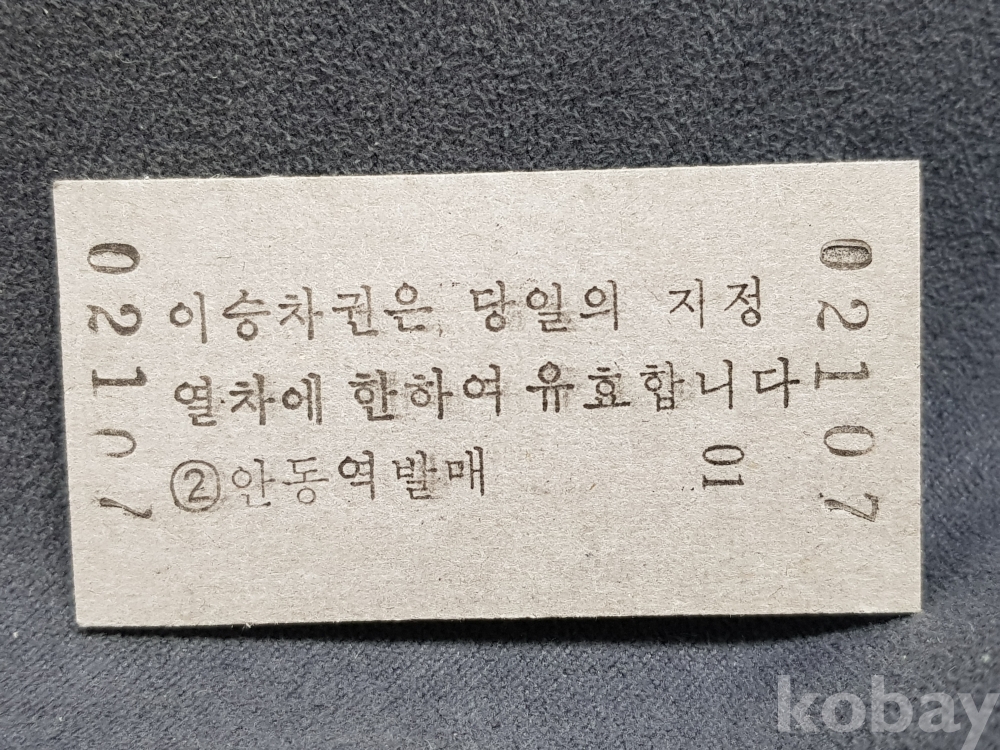 02107
이승차권은 당일의 지정
열차에 한하여 유효합니다
②안동역발매 01
02107
kobay